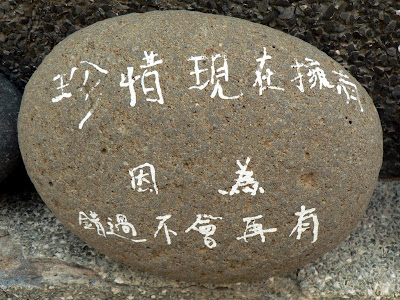 珍惜現在擁有
因為
錯過不會再有